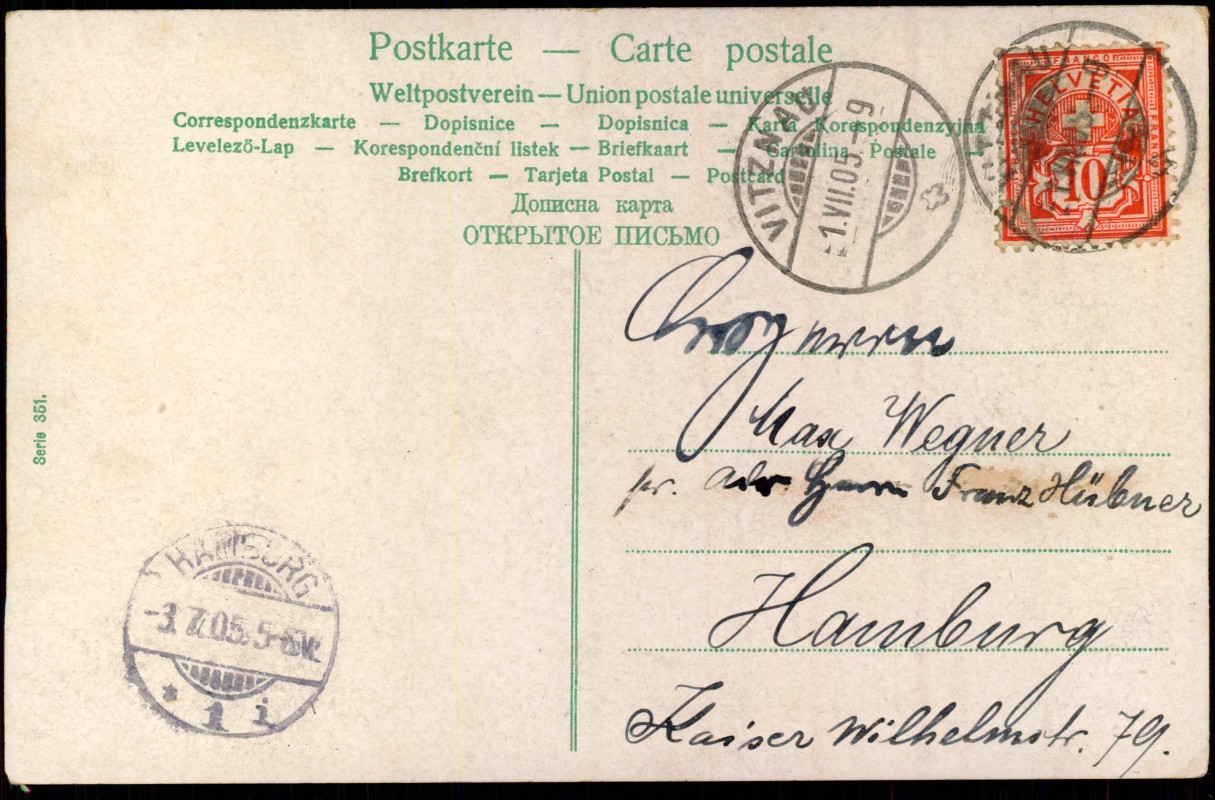 Postkarte — Carte postale
Weltpostverein — Union postale universelle
Correspondenzkarte — Dopisnice — Dopisnica — Karta Korespondenzyjna
Levelező-Lap — Korespondenční listek — Briefkaart — Cartolina Postale —
Brefkort — Tarjeta Postal — Postcard
Дописна карта
ОТКРЫТОЕ ПИСЬМО
VITZNAU
1.VII.05.-9
FRANCO
HELVETIA
10
FRANCO
Max Wegner
pr. Adr. Herrn Franz Hübner
Hamburg
Kaiser Wilhelmstr. 79.
Serie 351.
HAMBURG
-3.7.05.5-6N.
* 1 i